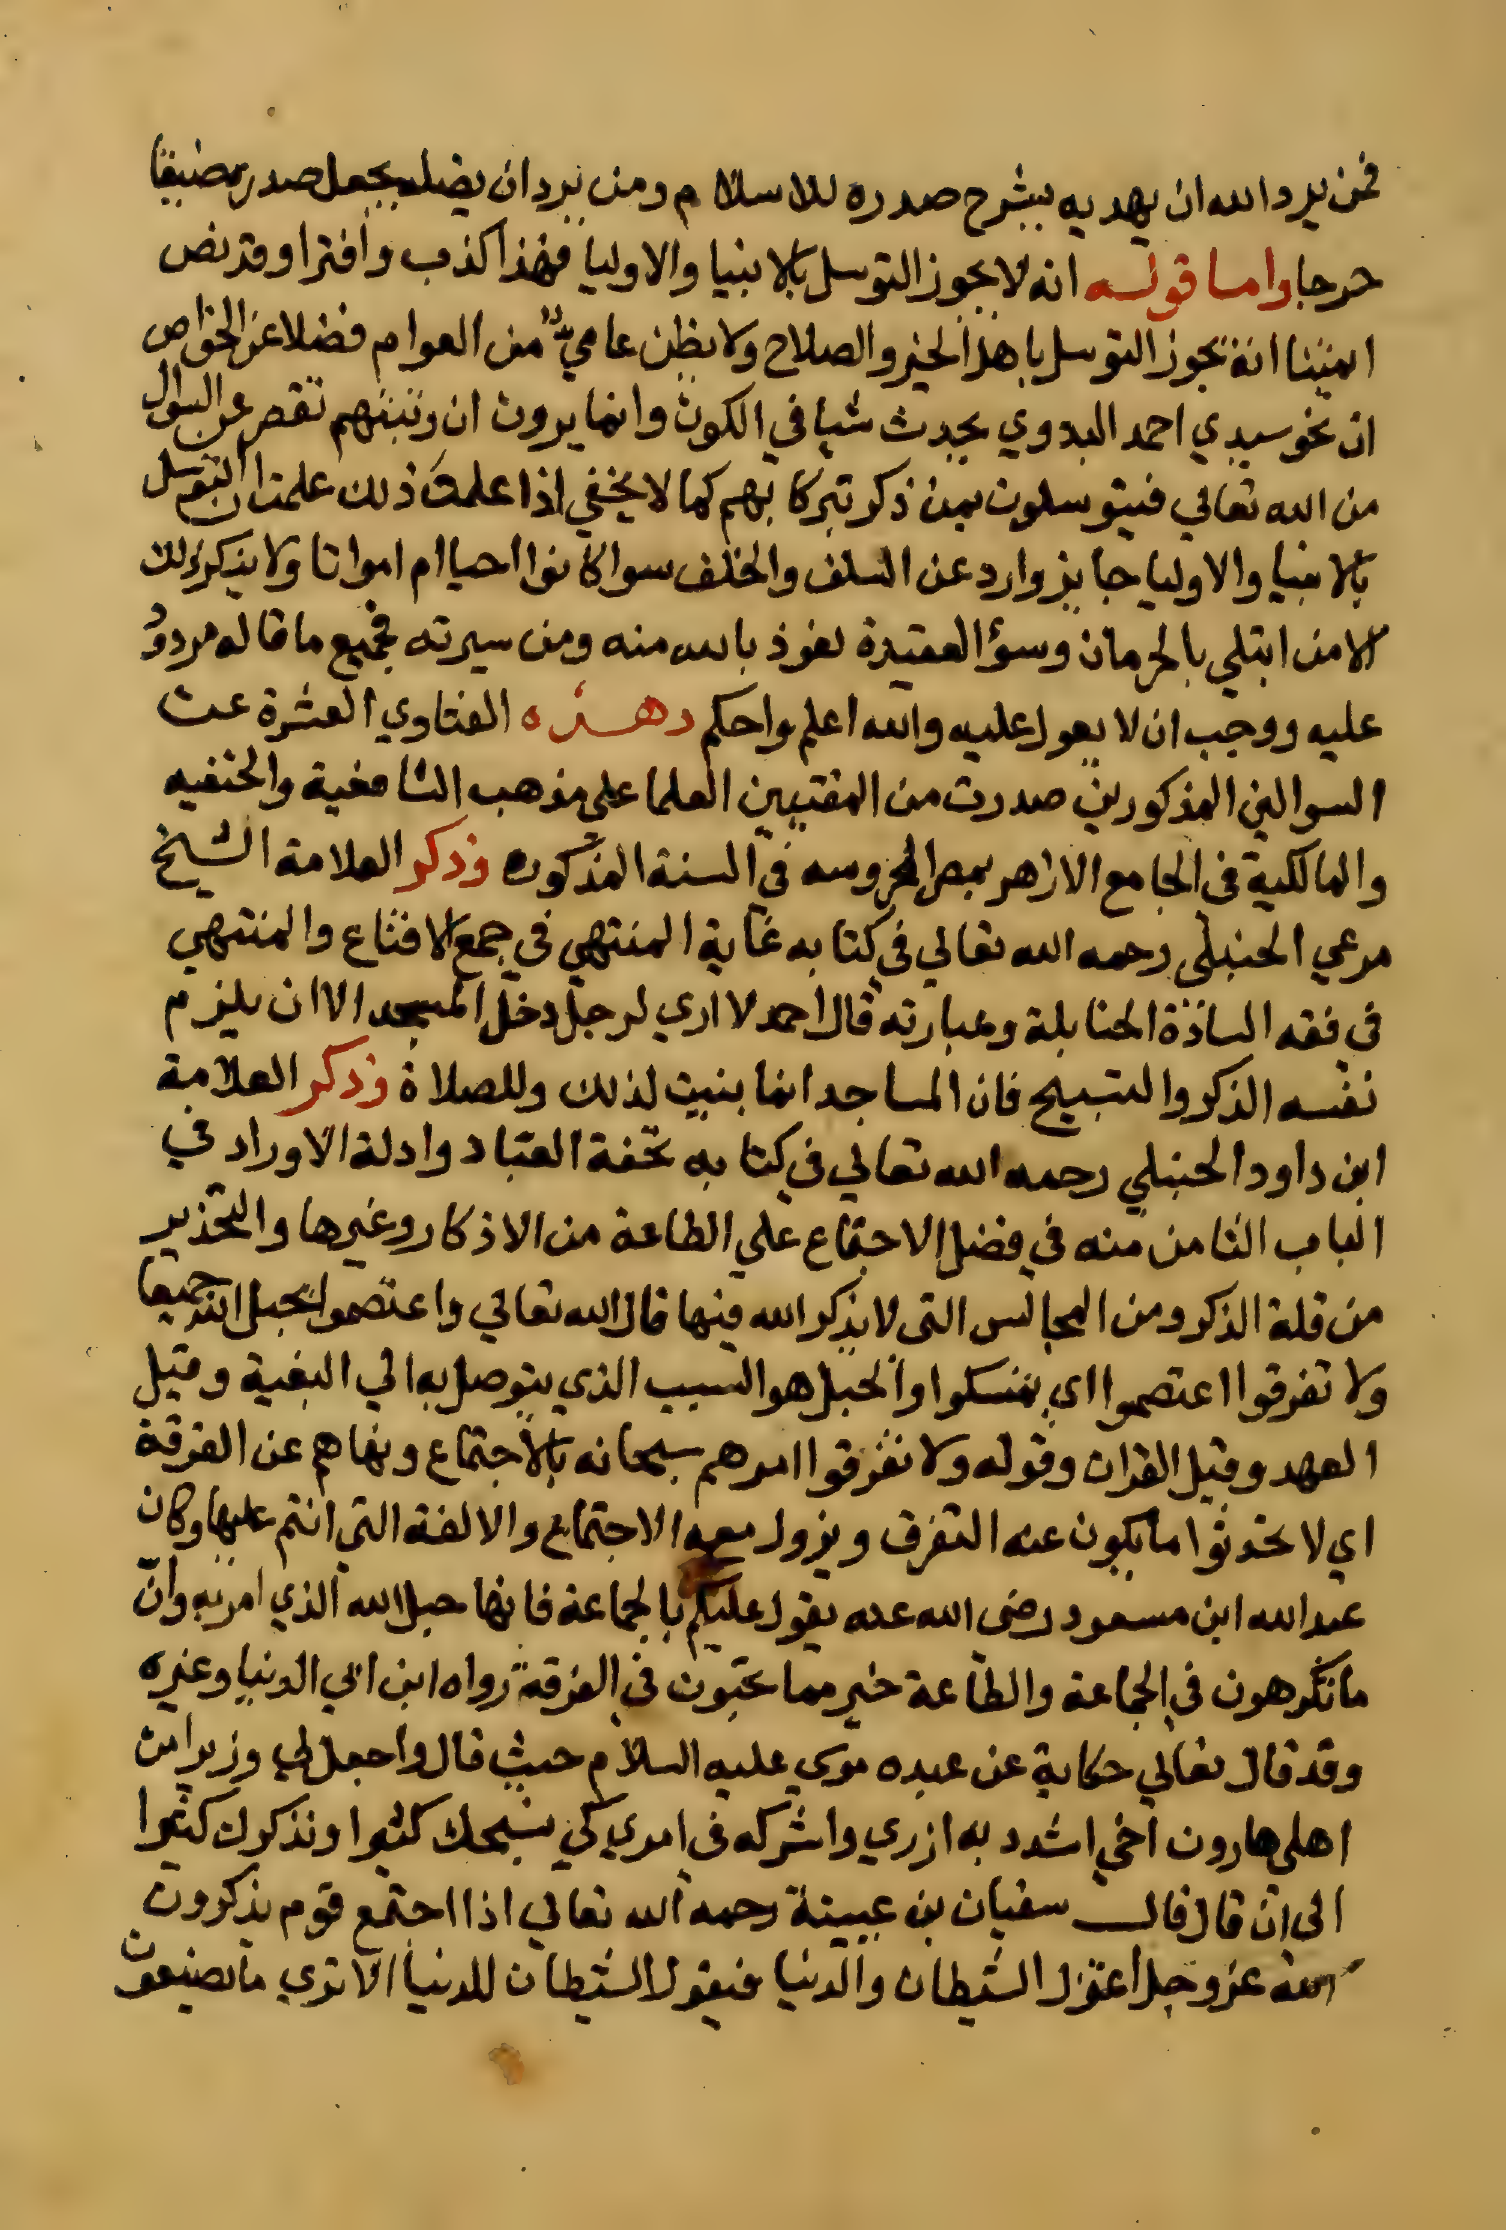 فمن يرد الله ان يهديه يشرح صدره للاسلام ومن يرد ان يضله يجعل صدره ضيقا
حرجا واما قوله انه لا يجوز التوسل بالانبيا والاوليا فهذا كذب وافترا وقد نص
ايمتنا انه يجوز التوسل باهل الخير والصلاح ولا يظن عامي من العوام فضلا عن الخواص
ان نحو سيدي احمد البدوي يحدث شيا في الكون وانما يرون ان رتبتهم تقصر عن السوال
من الله تعالي فيتوسلون بمن ذكر تبركا بهم كما لا يخفي اذا علمت ذلك علمت ان التوسل
بالانبيا والاوليا جايز وارد عن السلف والخلف سوا كانوا احيا ام امواتا ولا ينكر ذلك
الا من ابتلي بالحرمان وسؤ العقيدة نعوذ بالله منه ومن سيرته فجميع ما قاله مردود
عليه ووجب ان لا يعول عليه والله اعلم واحكم وهذه الفتاوي العشرة عن
السوالين المذكورين صدرت من المفتيين العلما علي مذهب الشافعية والحنفيه
والمالكية في الجامع الازهر بمصر المحروسه في السنة المذكوره وذكر العلامة الشيخ
مرعي الحنبلي رحمه الله تعالي في كتابه غاية المنتهي في جمع الاقناع والمنتهي
في فقه الساذة الحنابلة وعبارته قال احمد لا اري لرجل دخل المسجد الا ان يلزم
نفسه الذكر والتسبيح فان المساجد انما بنيت لذلك وللصلاة وذكر العلامة
ابن داود الحنبلي رحمه الله تعالي في كتابه تحفة العباد وادلة الاوراد في
الباب الثامن منه في فضل الاجتماع علي الطاعة من الاذكار وغيرها والتحذير
من قلة الذكر ومن المجالس التي لا يذكر الله فيها قال الله تعالي واعتصموا بحبل الله جميعا
ولا تفرقوا اعتصموا اي تمسكوا والحبل هو السبب الذي يتوصل به الي البغية وقيل
العهد وقيل القران وقوله ولا تفرقوا امرهم سبحانه بالاجتماع ونهاهم عن الفرقة
اي لا تحدثوا ما يكون عنه التفرق ويزول معه الاجتماع والالفة التي انتم عليها وكان
عبد الله ابن مسعود رضي الله عنه يقول عليكم بالجماعة فانها حبل الله الذي امر به وانّ
ما تكرهون في الجماعة والطاعة خير مما تحبون في الفرقة رواه ابن ابي الدنيا وغيره
وقد قال تعالي حكاية عن عبده موسي عليه السلام حيث قال واجعل لي وزيرا من
اهلي هارون اخي اشدد به ازري واشركه في امري كي نسبحك كثيرا ونذكرك كثيرا
الى ان قال قال سفيان بن عيينة رحمه الله تعالي اذا اجتمع قوم يذكرون
الله عز وجل اعتزل الشيطان والدنيا فيقول الشيطان للدنيا الا تري ما يصنعون